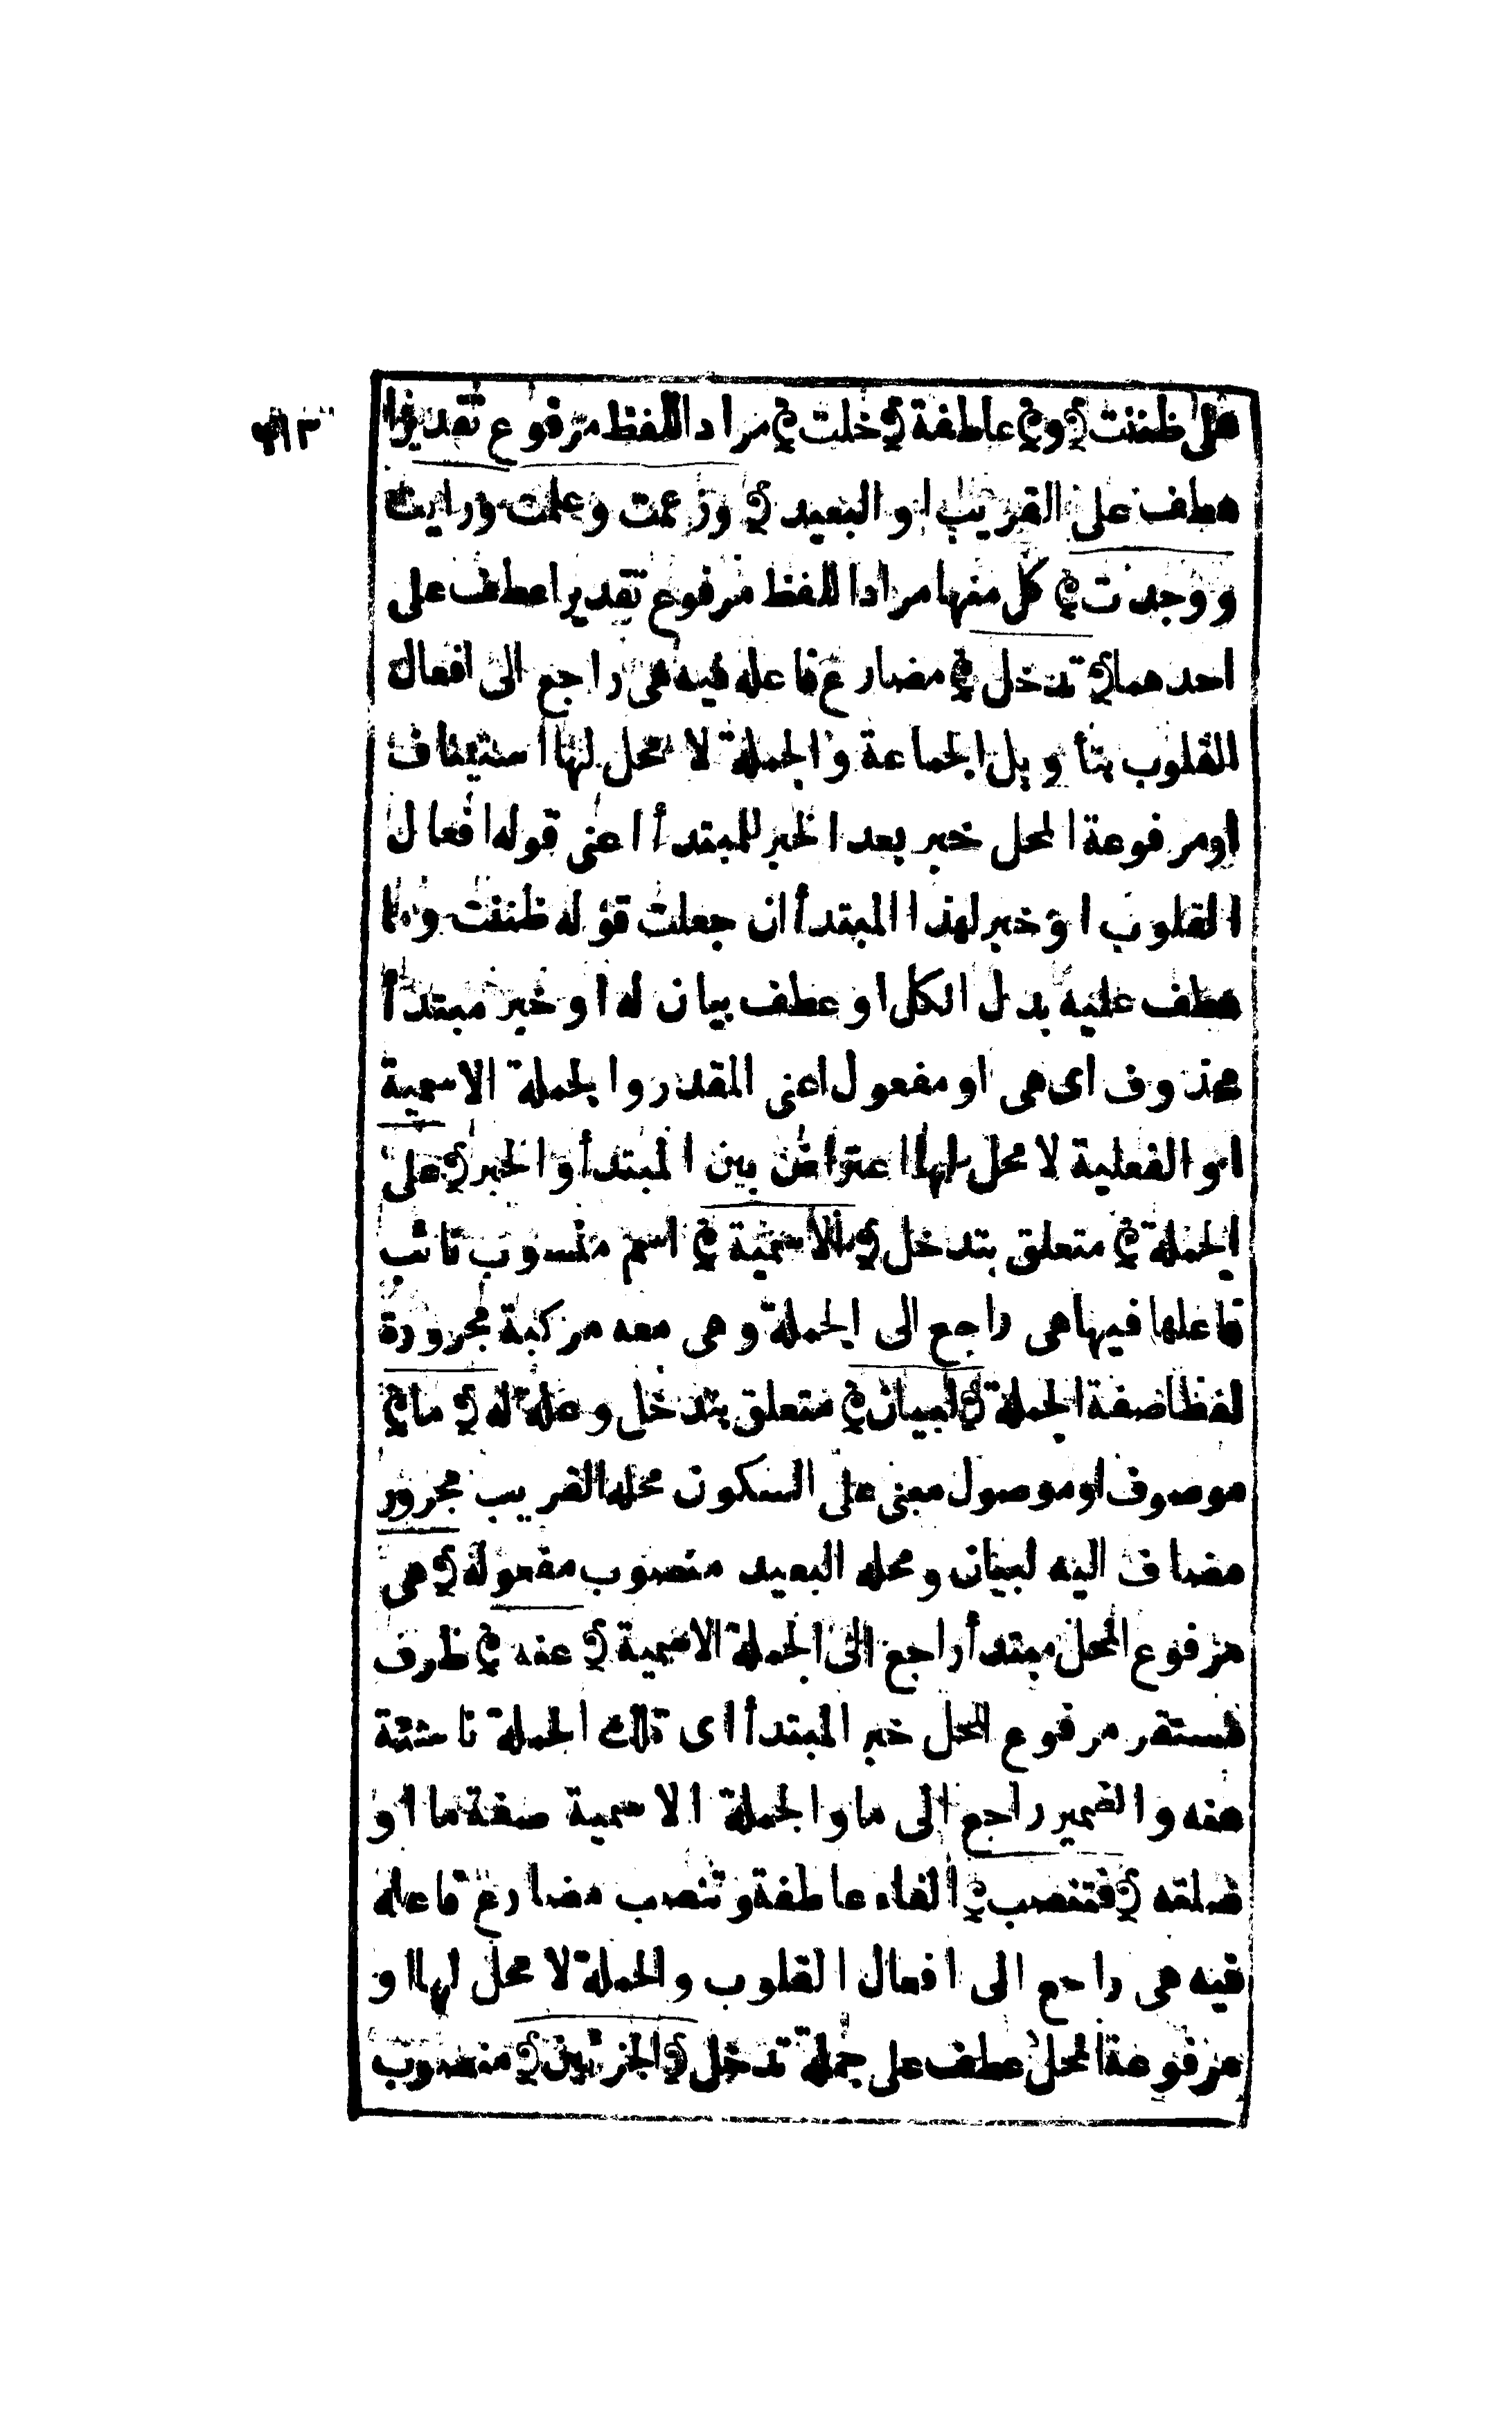 على ظننت ﴾ و ﴿ عاطفة ﴾ خلت ﴿ مراد اللفظ مرفوع تقديرا
عطف على القريب او البعيد ﴾ وزعمت وعلمت ورايت
ووجدت ﴿ كل منها مراد اللفظ مرفوع تقديرا عطف على
احدهما ﴾ تدخل ﴿ مضارع فاعله فيه هى راجع الى افعال
القلوب بتأويل الجماعة والجملة لا محل لها استيناف
او مرفوعة المحل خبر بعد الخبر للمبتدأ اعنى قوله افعال
القلوب او خبر لهذا المبتدأ ان جعلت قوله ظننت وما
عطف عليه بدل الكل او عطف بيان له او خبر مبتدأ
محذوف اى هى او مفعول اعنى المقدر والجملة الاسمية
او الفعلية لا محل لها اعتراض بين المبتدأ والخبر ﴾ على
الجملة ﴿ متعلق بتدخل ﴾ الاسمية ﴿ اسم منسوب نائب
فاعلها فيها هى راجع الى الجملة وهى معه مركبة مجرورة
لفظا صفة الجملة ﴾ لبيان ﴿ متعلق بتدخل وعلة له ﴾ ما ﴿
موصوف او موصول مبنى على السكون محله القريب مجرور
مضاف اليه لبيان ومحله البعيد منصوب مفعوله ﴾ هى
مرفوع المحل مبتدأ راجع الى الجملة الاسمية ﴾ عنه ﴿ ظرف
مستقر مرفوع المحل خبر المبتدأ اى تلك الجملة ناشئة
عنه والضمير راجع الى ما والجملة الاسمية صفة ما او
صلته ﴾ فتنصب ﴿ الفاء عاطفة وتنصب مضارع فاعله
فيه هى راجع الى افعال القلوب والجملة لا محل لها او
مرفوعة المحل عطف على جملة تدخل ﴾ الجزئين ﴿ منصوب